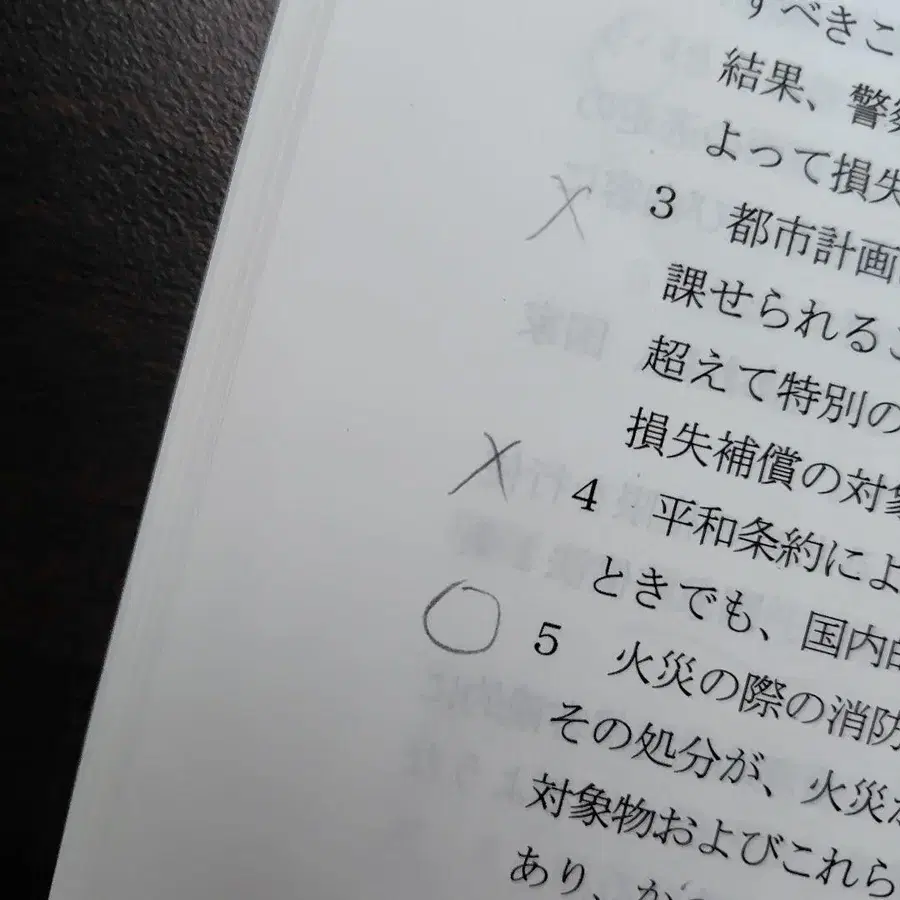 すべきこ
結果、警察
よって損失
× 3 都市計画
課せられるこ
超えて特別の
損失補償の対象
× 4 平和条約によ
ときでも、国内的
○ 5 火災の際の消防
その処分が、火災が
対象物およびこれら
あり、かつ